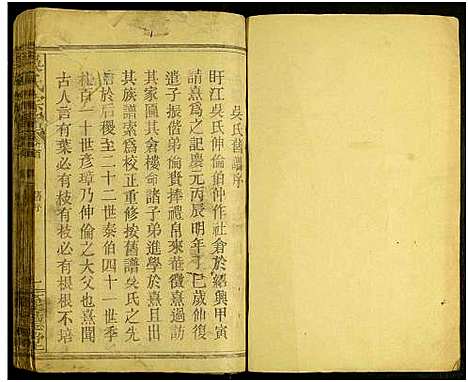 吳氏舊譜序
盱江吳氏伸倫伯伸作社倉於紹興甲寅
請熹爲之記慶元丙辰明年丁巳歲伸復
遣子振偕弟倫賫捧禮帛來菴徵熹過訪
其家圖其倉樓命諸子弟進學於熹且出
其族譜索爲校正重修按舊譜吳氏之先
於后稷至二十二世泰伯四十一世季
札百二十世彦璋乃伸倫之大父也熹聞
古人言有葉必有枝有枝必有根根不培